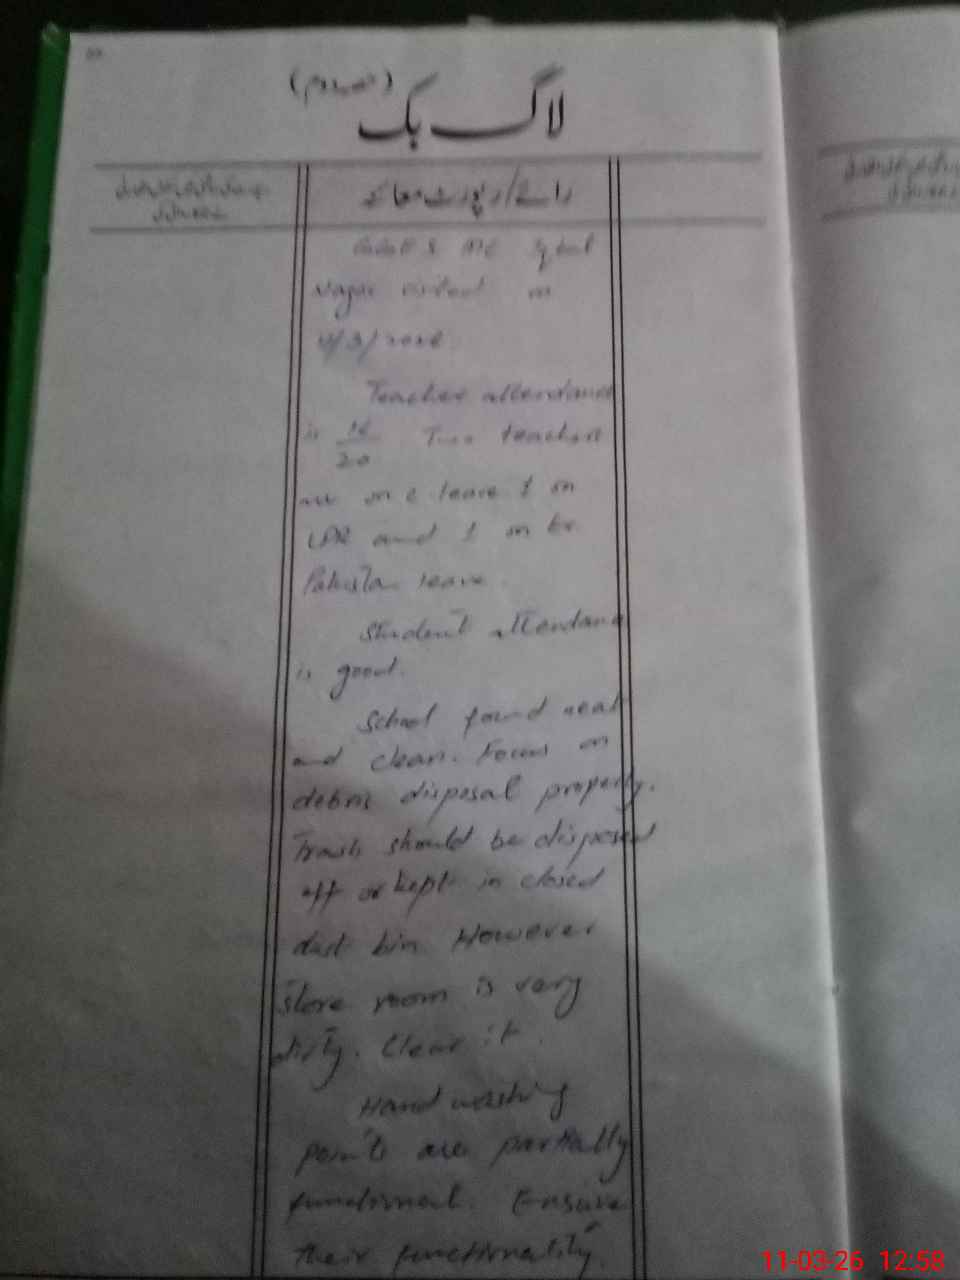 (حصہ دوم)
لاگ بک
رائے/رپورٹ معائنہ
Nagar visited on
Teacher attendance
is 16/20 Two teachers
are on c leave 1 on
LPR and 1 on Ex
Pakistan leave.
Student attendance
is good.
School found neat
and clean. Focus on
debris disposal properly.
Trash should be disposed
off or kept in closed
dust bin. However
store room is very
dirty. Clear it.
Hand washing
points are partially
functional. Ensure
their functionality.
11-03-26 12:58